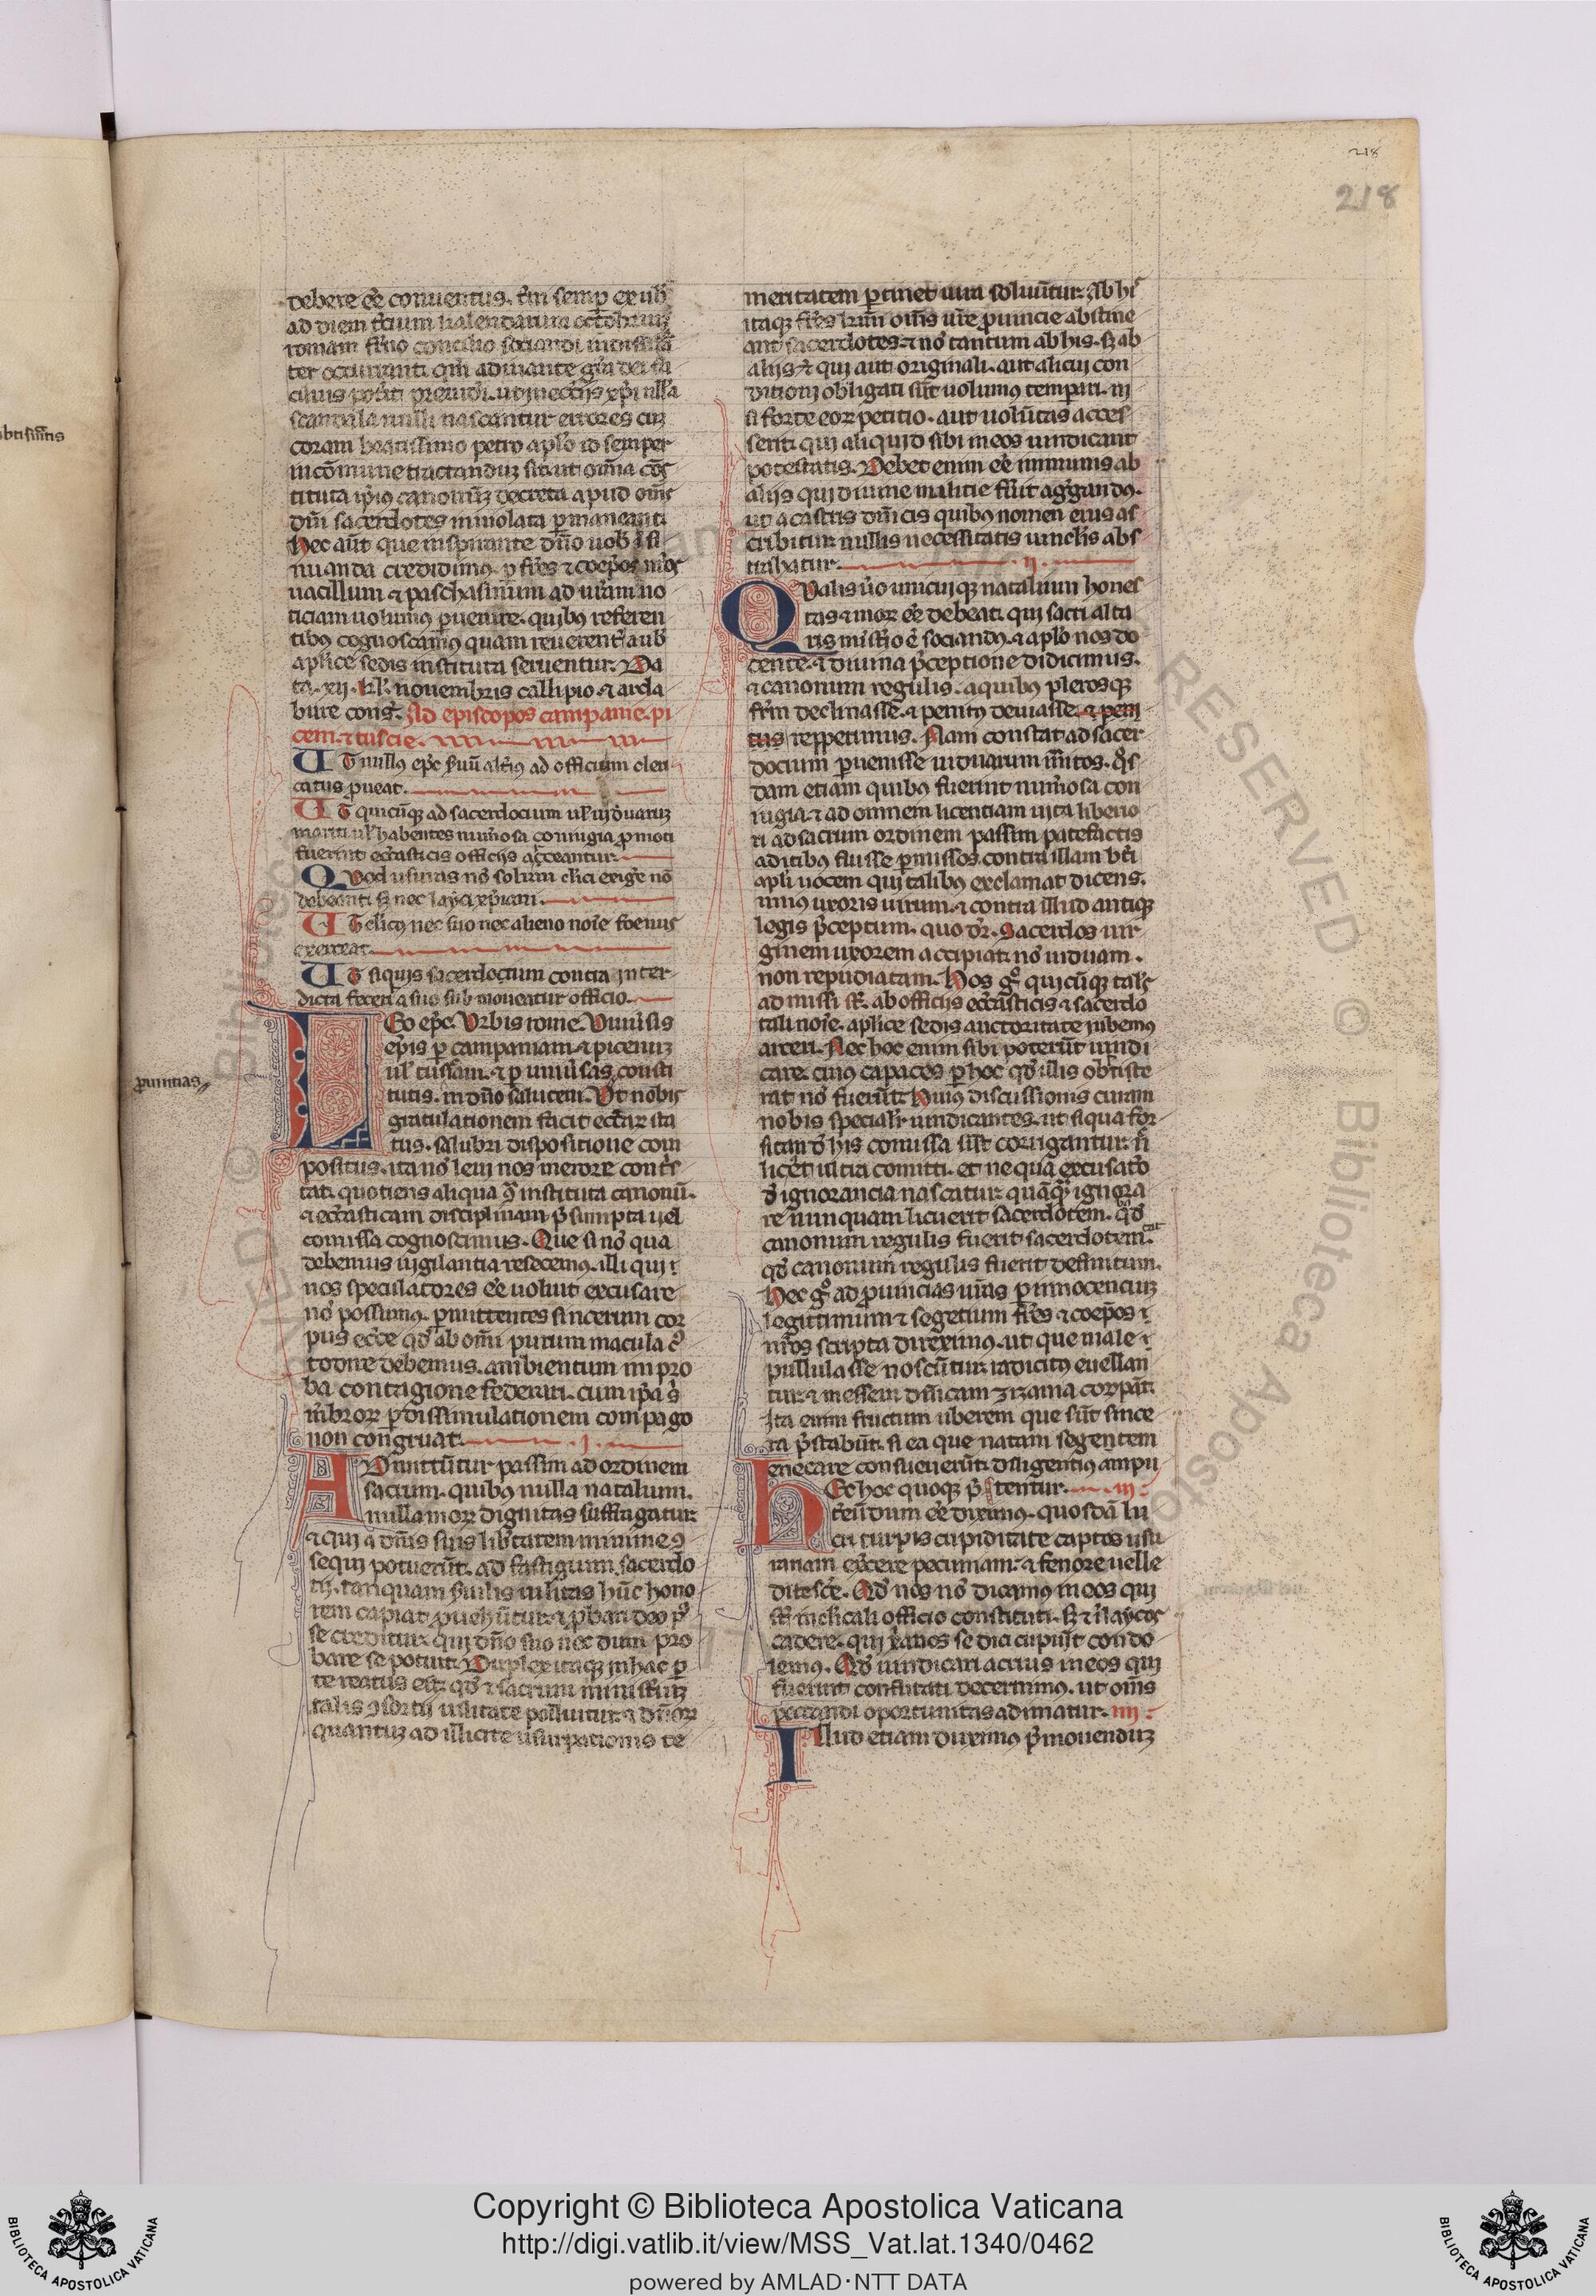 218
218
btissimis
debere eē conuentus. t̄m semp ex uob̄
ad diem tercium kalendarum octobriuȝ
romam fr̄no concilio sociandi
ter occurrant. qm̄ adiuuante gr̄a dei fa
cilius pot̄it
scandala nulli nascantur errores cuȝ
coram beatissimo petro aplo id semper
in cōmune tractanduȝ sit. ut om̄ia cōs
tituta ip̄ius canonuȝ decreta apud om̄s
dn̄i sacerdotes inuiolata p̄maneant.
Hec aūt que inspirante dn̄o uob̄ īsi
nuanda credidimus. p̄ fr̄es ⁊ coep̄os nr̄os
uacillum ⁊ paschasinum ad ur̄am no
ticiam uolumus p̄uenire. quibus referen
tibus cognoscamus quam reuerent̄ a uob̄
aplice sedis instituta seruentur. Da
ta. xij. kl. nouembris callipio. ⁊ arda
bure cons̄. Ad episcopos campanie. pi
ceni. ⁊ tuscie.
UT nullus ep̄c s̄uū alt̄ius ad officium cleri
catus p̄ueat.
UT quicūq ad sacerdocium ul uiduaruȝ
mariti ul habentes num̄osa coniugia p̄moti
fuerint eccłasticis officijs arceantur.
Quod usuras nō solum clici exiḡe nō
debeant. sȝ nec layci xp̄iani.
UT clicus nec suo nec alieno noīe foenus
exerceat.
UT siquis sacerdocium contra inter
dicta fecerit a suo submoueatur officio.
LEo ep̄c. Vrbis rome. Vniu̅sis
ep̄is p̄ campaniam. ⁊ picenuȝ
ul tusciam. ⁊ p̄ uniu̅sas, consti
p̄uintias
tutis. in dn̄o salutem. Vt nobis
gratulationem facit eccłar̄ sta
tus. salubri dispositione com
positus. ita nō leui nos merore cont̄s
tat. quotiens aliqua ꝯ̄ instituta canonū.
⁊ eccłasticam disciplinam p̄sumpta uel
comissa cognoscimus. Que si nō qua
debemus uigilantia resecemus. illi qui ī
nos speculatores eē uoluit excusare
nō possumus. p̄mittentes sincerum cor
pus eccłe qd ab om̄i purum macula c̄us
todire debemus. ambientium impro
ba contagione federari. cum ip̄a s̄
m̄bror̄ p̄ dissimulationem compago
non congruat. .j.
ADmittūtur passim ad ordinem
sacrum. quibus nulla natalium.
nulla mor̄ dignitas suffragatur.
⁊ qui a dn̄is suis lib̄tatem minime ꝯ
sequi potuerūt. ad fastigium sacerdo
tij. tanquam s̄uilis uilitas hūc hono
rem capiat. p̄uehūtur. ⁊ p̄bari deo pos
se creditur. qui dn̄o suo nec dum pro
bare se potuit. Duplex itaq in hac p̄
te reatus est. qd ⁊ sacrum ministeriuȝ
talis ꝯsortij uilitate polluitur. ⁊ dn̄or̄
quantuȝ ad illicite usurpationis te
meritatem p̄tinet iura soluūtur. Ab his
itaq fr̄es kmi om̄s ur̄e p̄uincie abstine
ant sacerdotes. ⁊ nō tantum ab his. sȝ ab
alijs ⁊ qui aut originali. aut alicui con
ditioni obligati sūt uolumus temp̄ari. ni
si forte eor̄ petitio. aut uolūtas acces
serit. qui aliquid sibi in eos uindicant
potestatis. Debet enim eē immunis ab
alijs qui diuine militie fuit agḡgandus.
ut a castris dn̄icis quibus nomen eius as
cribitur. nullis necessitatis uinclis abs
trahatur. .ij.
QValis uo unicuiq natalium hones
tas ⁊ mor̄ eē debeat. qui sacri alta
ris minist̄io ē sociandus. ⁊ aplo nos do
cente. ⁊ diuina p̄ceptione didicimus.
⁊ canonum regulis. a quibus plerosq
fr̄m declinasse. ⁊ penitus deuiasse. ⁊ peni
tus repperimus. Nam constat ad sacer
docium p̄uenisse uiduarum m̄itos. qos
dam etiam quibus fuerint num̄osa con
iugia. ⁊ ad omnem licentiam uita liberio
ri ad sacrum ordinem passim patefactis
aditibus fuisse p̄missos. contra illam bt̄i
apli uocem qui talibus exclamat dicens.
unius uxoris uirum. ⁊ contra illud antique
legis p̄ceptum. quo dr̄. Sacerdos uir
ginem uxorem accipiat. nō uiduam.
non repudiatam. Hos go quicūq tales
admissi sūt. ab officijs eccłasticis ⁊ sacerdo
tali noīe. aplice sedis auctoritate iubemus
arceri. Nec hoc enim sibi poterūt uindi
care. cuius capaces p̄ hoc qd illis obstite
rat nō fuerūt. Huius discussionis curam
nobis specialr̄ uindicantes. ut si qua for
sitan d̄ his comissa sūt corrigantur. n̄
liceat ultra comitti. et ne qua excusatio
d̄ ignorancia nascatur. quāq ignora
re nunquam licuerit sacerdotem. qd
canonum regulis fuerit sacerdotem.
qd canonum regulis fuerit definitum.
Hec go ad p̄uincias ur̄as p̄ innocenciuȝ
legittimum ⁊ segetium fr̄es ⁊ coep̄os ī
nr̄os scripta direximus. ut que male ī
pullulasse noscūtur. radicitus euellan
tur. ⁊ messem dn̄icam zizania corrūpāt.
Ita enim fructum uberem que sūt since
ra p̄stabūt. si ea que natam segentem
enecare consueuerūt. diligentius ampu
tentur. .iij.
HEc hoc quoq p̄
t̄eūdum eē diximus. quosdā lu
cri turpis cupiditate captos usu
rariam exercere pecuniam. ⁊ fenore uelle
ditesce. Qd nos nō dicamus in eos qui
sūt in clicali officio constituti. sȝ ⁊ ī laycos
cadere. qui xp̄ianos se dici cupiūt condo
lemus. Qd uindicari acrius in eos qui
fuerint confutati decernimus. ut om̄is
peccandi oportunitas adimatur. iiij.
Illud etiam duximus p̄monenduȝ
Copyright © Biblioteca Apostolica Vaticana
http://digi.vatlib.it/view/MSS_Vat.lat.1340/0462
powered by AMLAD·NTT DATA
BIBLIOTECA APOSTOLICA VATICANA
BIBLIOTECA APOSTOLICA VATICANA